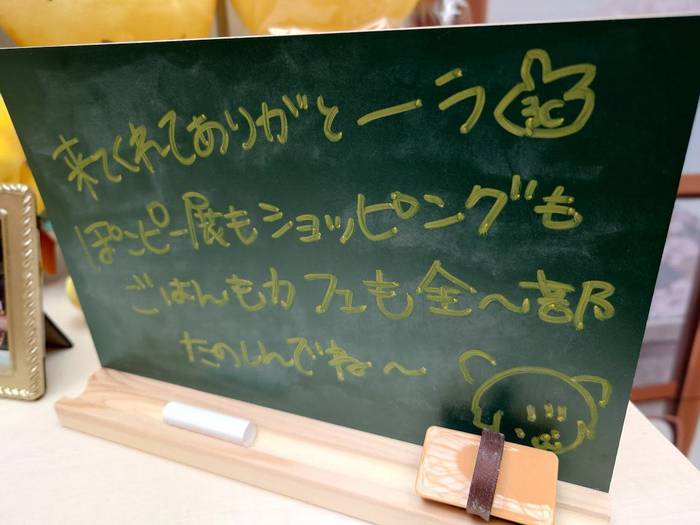 来てくれてありがとーう
ぽこピー展もショッピングも
ごはんもカフェも全〜部
たのしんでね〜